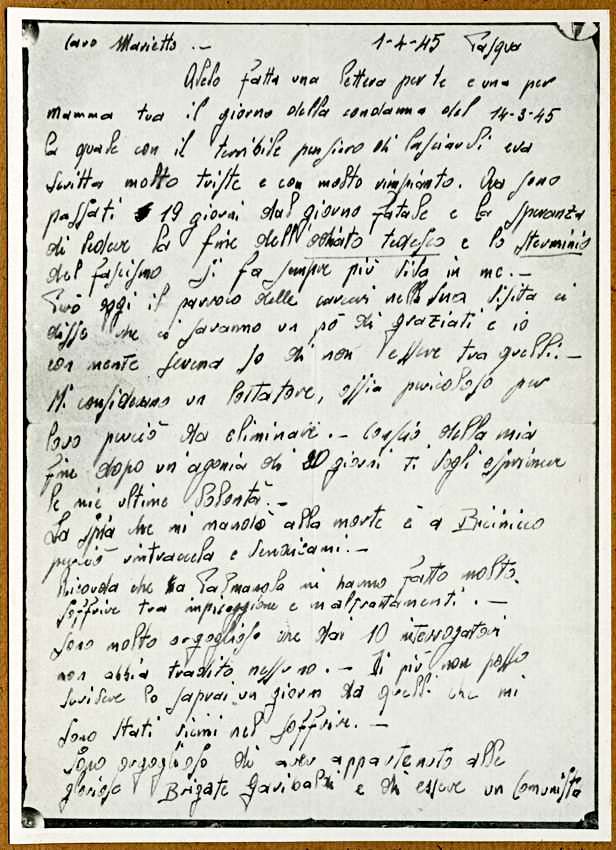 Caro Marietto. — 1-4-45 Pasqua
Avevo fatta una lettera per te e una per
mamma tua il giorno della condanna del 14-3-45
la quale con il terribile pensiero di lasciarvi era
scritta molto triste e con molto rimpianto. Ora sono
passati 19 giorni dal giorno fatale e la speranza
di vedere la fine dell'odiato tedesco e lo sterminio
del fascismo si fa sempre più viva in me. —
Però oggi il parroco delle carceri nella sua visita ci
disse che ci saranno un pò di graziati e io
con mente serena so di non essere tra quelli. —
Mi considerano un portatore, ossia pericoloso per
loro perciò da eliminare. — Conscio della mia
fine dopo un'agonia di 20 giorni ti vogli esprimere
le mie ultime volontà. —
La spia che mi mandò alla morte è a Bicinicco
perciò rintracciela e vendicami. —
Ricorda che a Palmanova mi hanno fatto molto
soffrire tra impiccagione e maltrattamenti. —
Sono molto orgoglioso che dai 10 interrogatori
non abbia tradito nessuno. — Di più non posso
scrivere lo saprai un giorno da quelli che mi
sono stati vicini nel soffrire. —
Sono orgoglioso di aver appartenuto alle
gloriose Brigate Garibaldi e di essere un Comunista